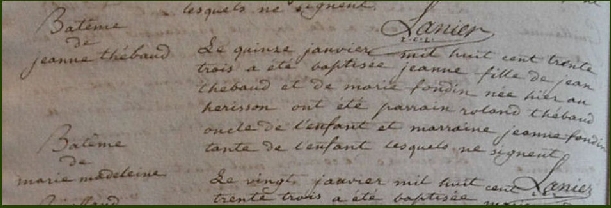 lesquels ne signent
Lanier
Batême
de
jeanne thébaud
Le quinze janvier mil huit cent trente
trois a été baptisée jeanne fille de jean
thébaud et de marie fondin née hier au
herisson ont été parrain roland thébaud
oncle de l'enfant et marraine jeanne fondin
tante de l'enfant lesquels ne signent
Lanier
Batême
de
marie madeleine
Le vingt janvier mil huit cent
trente trois a été baptisée